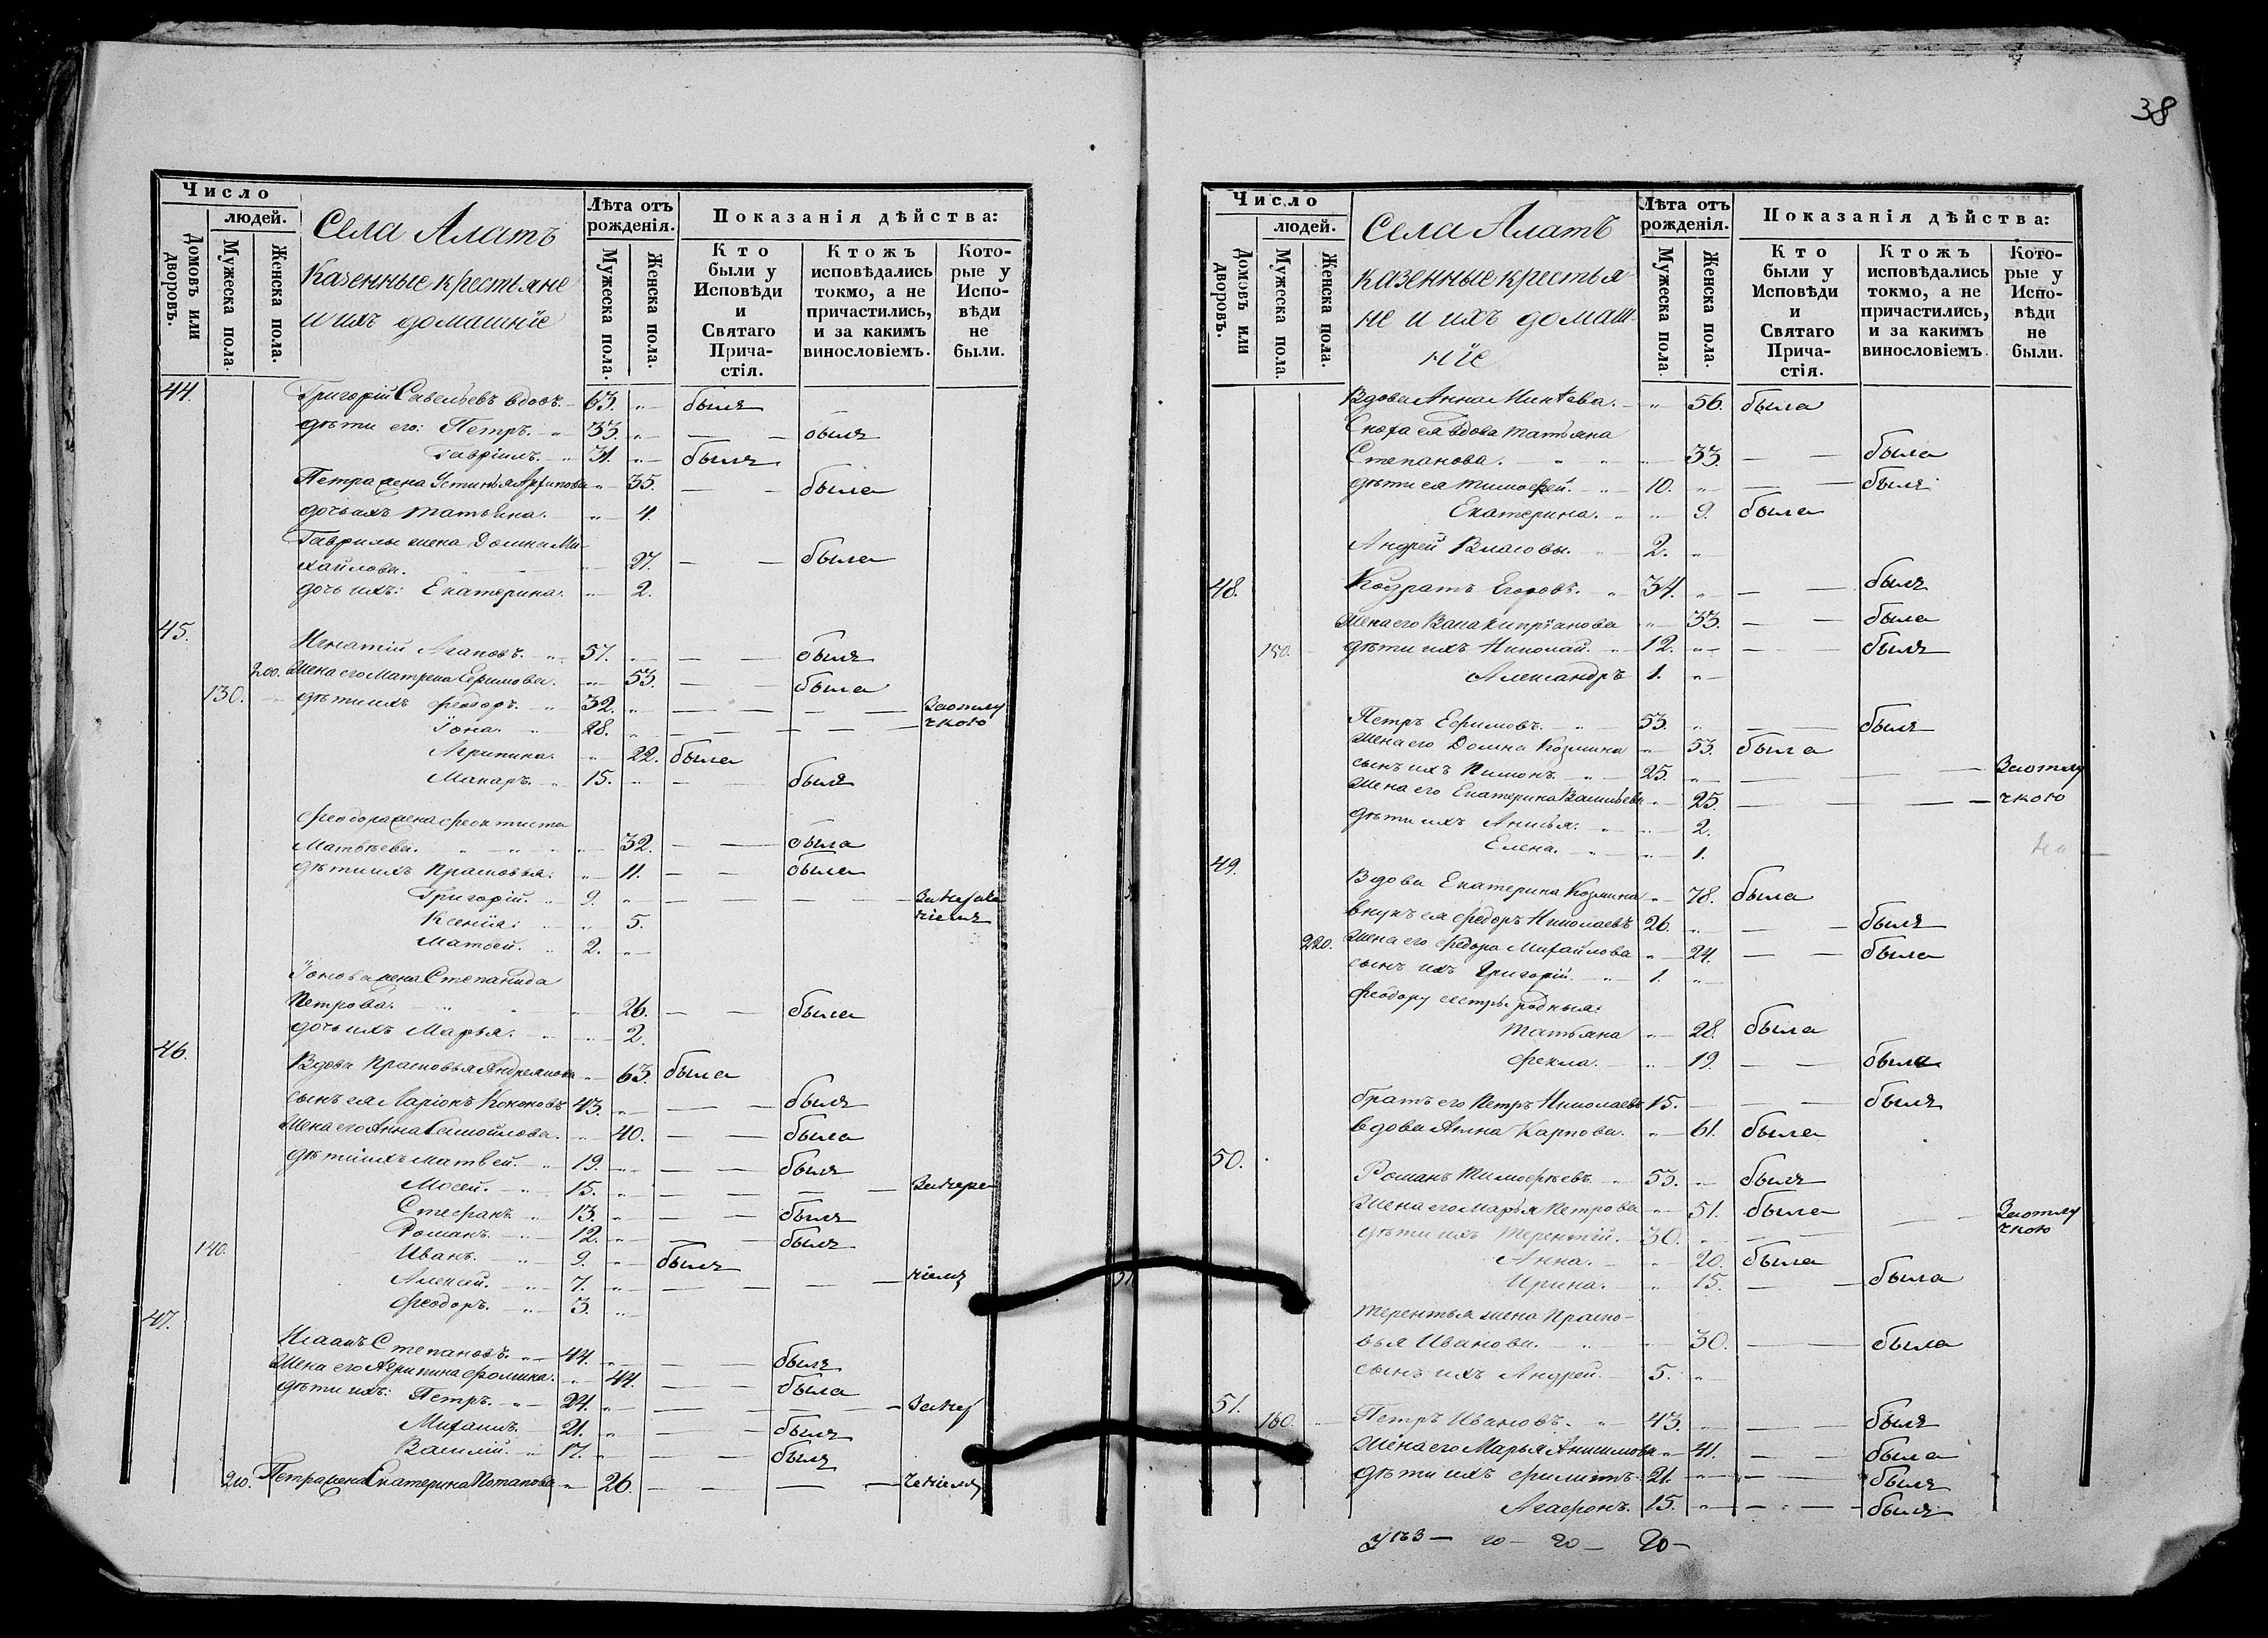 Число
людей.
Домовъ или дворовъ.
Мужеска пола.
Женска пола.
Села Алатъ
Казенные крестьяне
и ихъ домашнїе
Лѣта отъ рожденія.
Мужеска пола.
Женска пола.
Показанія дѣйства:
Кто были у Исповѣди и Святаго Причастія.
Ктожъ исповѣдались токмо, а не причастились, и за какимъ винословіемъ.
Которые у Исповѣди не были.
44.
Григорїй Савельевъ вдовъ. 63. былъ
дѣти его: Петръ. 33. былъ
Гаврїилъ. 31. былъ
Петра жена Устинья Архипова 35. была
дочь ихъ Татьяна. 4.
Гаврилы жена Домна Ми-
хайлова. 27. была
дочь ихъ: Екатерина. 2.
45.
Игнатїй Агаповъ. 57. былъ
200. Жена его Матрена Ефимова. 53. была
130. дѣти ихъ Феодоръ. 32. За отлу
Їона. 28. чкою
Агрипина. 22. была
Макаръ. 15. былъ
Феодора жена Феоктиста
Матвѣева. 32. была
дѣти ихъ Прасковья. 11. была
Григорїй. 9.
Ксенїя: 5.
Матвей. 2.
Їонова жена Степанида
Петрова. 26. была
дочь ихъ Марья. 2.
46.
Вдова Прасковья Андреянова 63. была
сынъ ея Ларїонъ Кононовъ 43. былъ
Жена его Анна Самойлова. 40. была
дѣти ихъ Матвей. 19. былъ
Мосей. 15. За нера
Стефанъ. 13. былъ
Романъ. 12. былъ
140. Иванъ. 9. былъ
Алексей. 7. нїемъ
Феодоръ. 3.
47.
Исаакъ Степановъ. 44. былъ
Жена его Агрипина Фомина. 44. была
дѣти ихъ: Петръ. 24.
Михаилъ. 21. былъ
Василїй. 17. былъ
210. Петра жена Екатерина Потапова 26.
38
Число
людей.
Домовъ или дворовъ.
Мужеска пола.
Женска пола.
Села Алатъ
казенные крестья
не и ихъ домаш-
нїе
Лѣта отъ рожденія.
Мужеска пола.
Женска пола.
Показанія дѣйства:
Кто были у Исповѣди и Святаго Причастія.
Ктожъ исповѣдались токмо, а не причастились, и за какимъ винословіемъ.
Которые у Исповѣди не были.
Вдова Анна Минѣева. 56. была
Сноха ея вдова Татьяна
Степанова. 33. была
дѣти ея Тимофей. 10. былъ
Екатерина. 9. была
Андрей Власовы. 2.
48. Кодратъ Егоровъ. 34. былъ
Жена его Васа Кипрїанова 33. была
150. дѣти ихъ Николай. 12. былъ
Александръ 1.
Петръ Ефимовъ. 53. былъ
Жена его Домна Козмина 53. была
сынъ ихъ Пимонъ. 25. За отлу
Жена его Екатерина Васильева 25. чкою
дѣти ихъ Анисья. 2.
Елена. 1.
49.
Вдова Екатерина Козмина 78. была
внукъ ея Федоръ Николаевъ 26. былъ
220. Жена его Федора Михайлова 24. была
сынъ ихъ Григорїй. 1.
Феодору сестры родныя:
Татьяна 28. была
Фекла. 19. была
братъ его Петръ Николаевъ 15. былъ
вдова Анна Карпова. 61. была
50.
Романъ Тимофѣевъ. 53. былъ
Жена его Марья Петрова 51. была За отлу
дѣти ихъ Терентїй. 30. чкою
Анна. 20. была
Ирина. 15. была
Терентья жена Праско-
вья Иванова. 30. была
сынъ ихъ Андрей. 5.
51.
160. Петръ Ивановъ. 43. былъ
Жена его Марья Анисимова 41. была
дѣти ихъ Филиппъ. 21. былъ
Агафонъ. 15. былъ